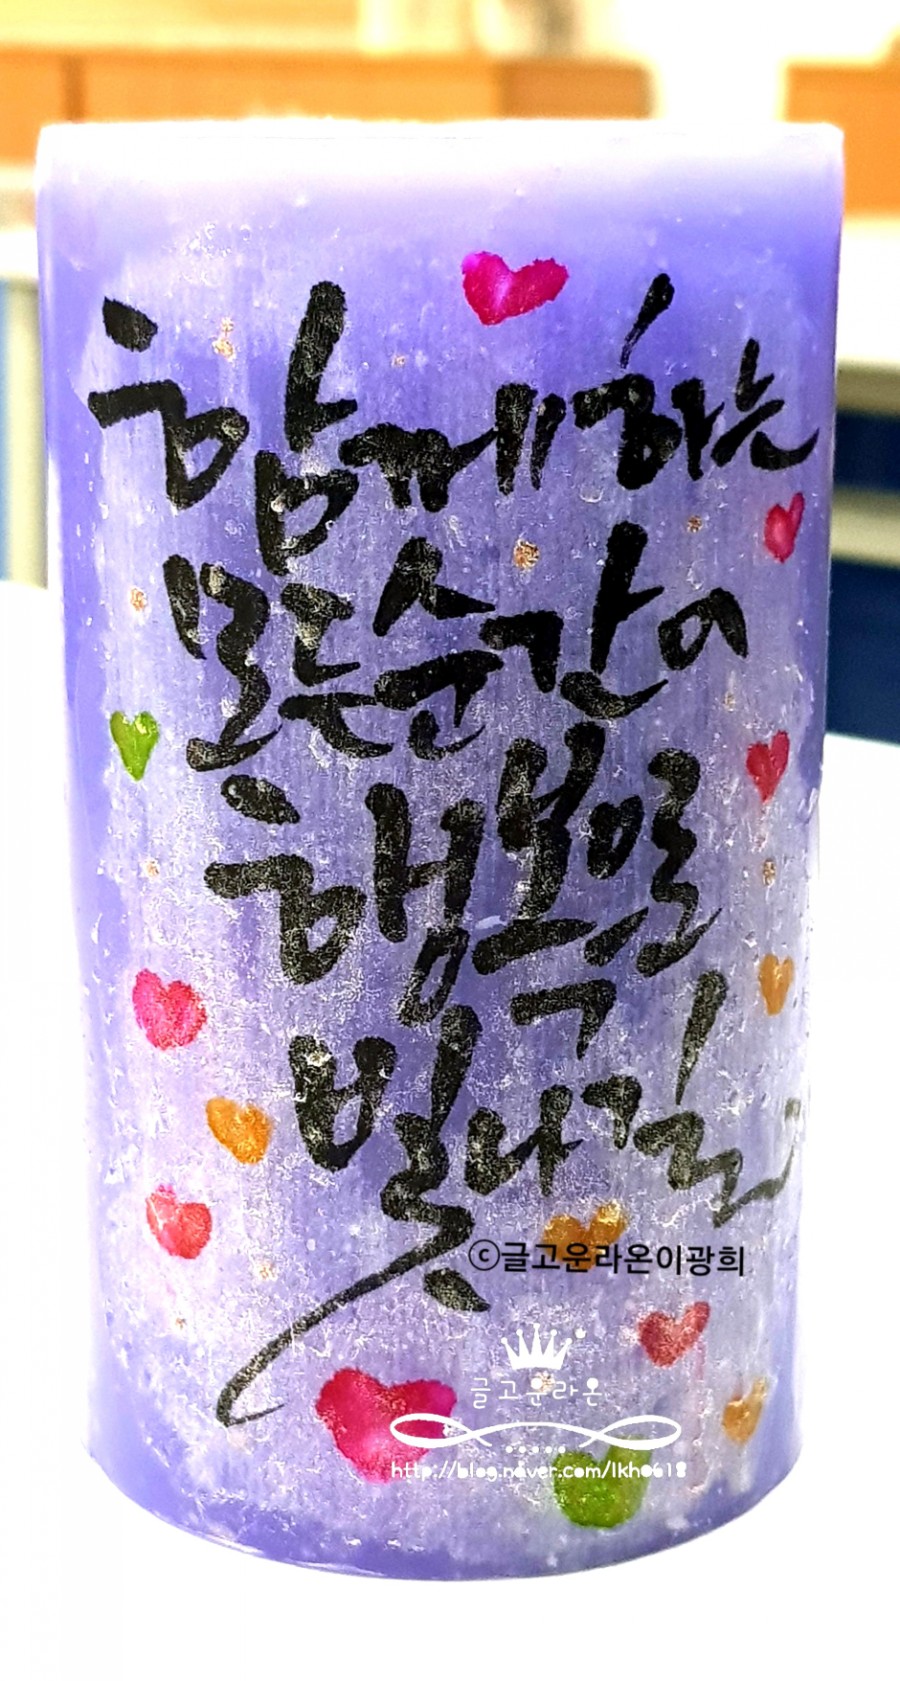 함께하는
모든순간이
행복으로
빛나길
ⓒ글고운라온이광희
글고운라온
http://blog.naver.com/lkh0618